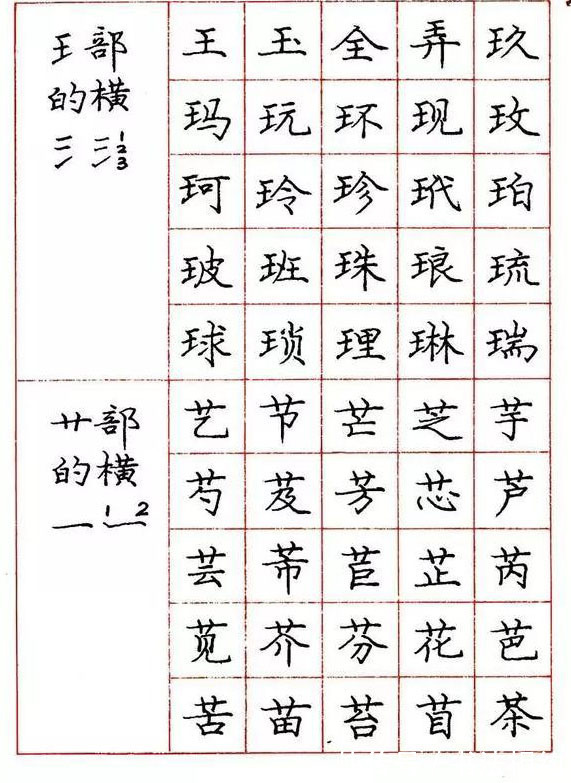 王部
的横
1
2
3
王 玉 全 弄 玖
玛 玩 环 现 玫
珂 玲 珍 玳 珀
玻 班 珠 琅 琉
球 琐 理 琳 瑞
艹部
的横
1 2
艺 节 芒 芝 芋
芍 芨 芳 芯 芦
芸 芾 苣 芷 芮
苋 芥 芬 花 芭
苦 苗 苔 苜 茶